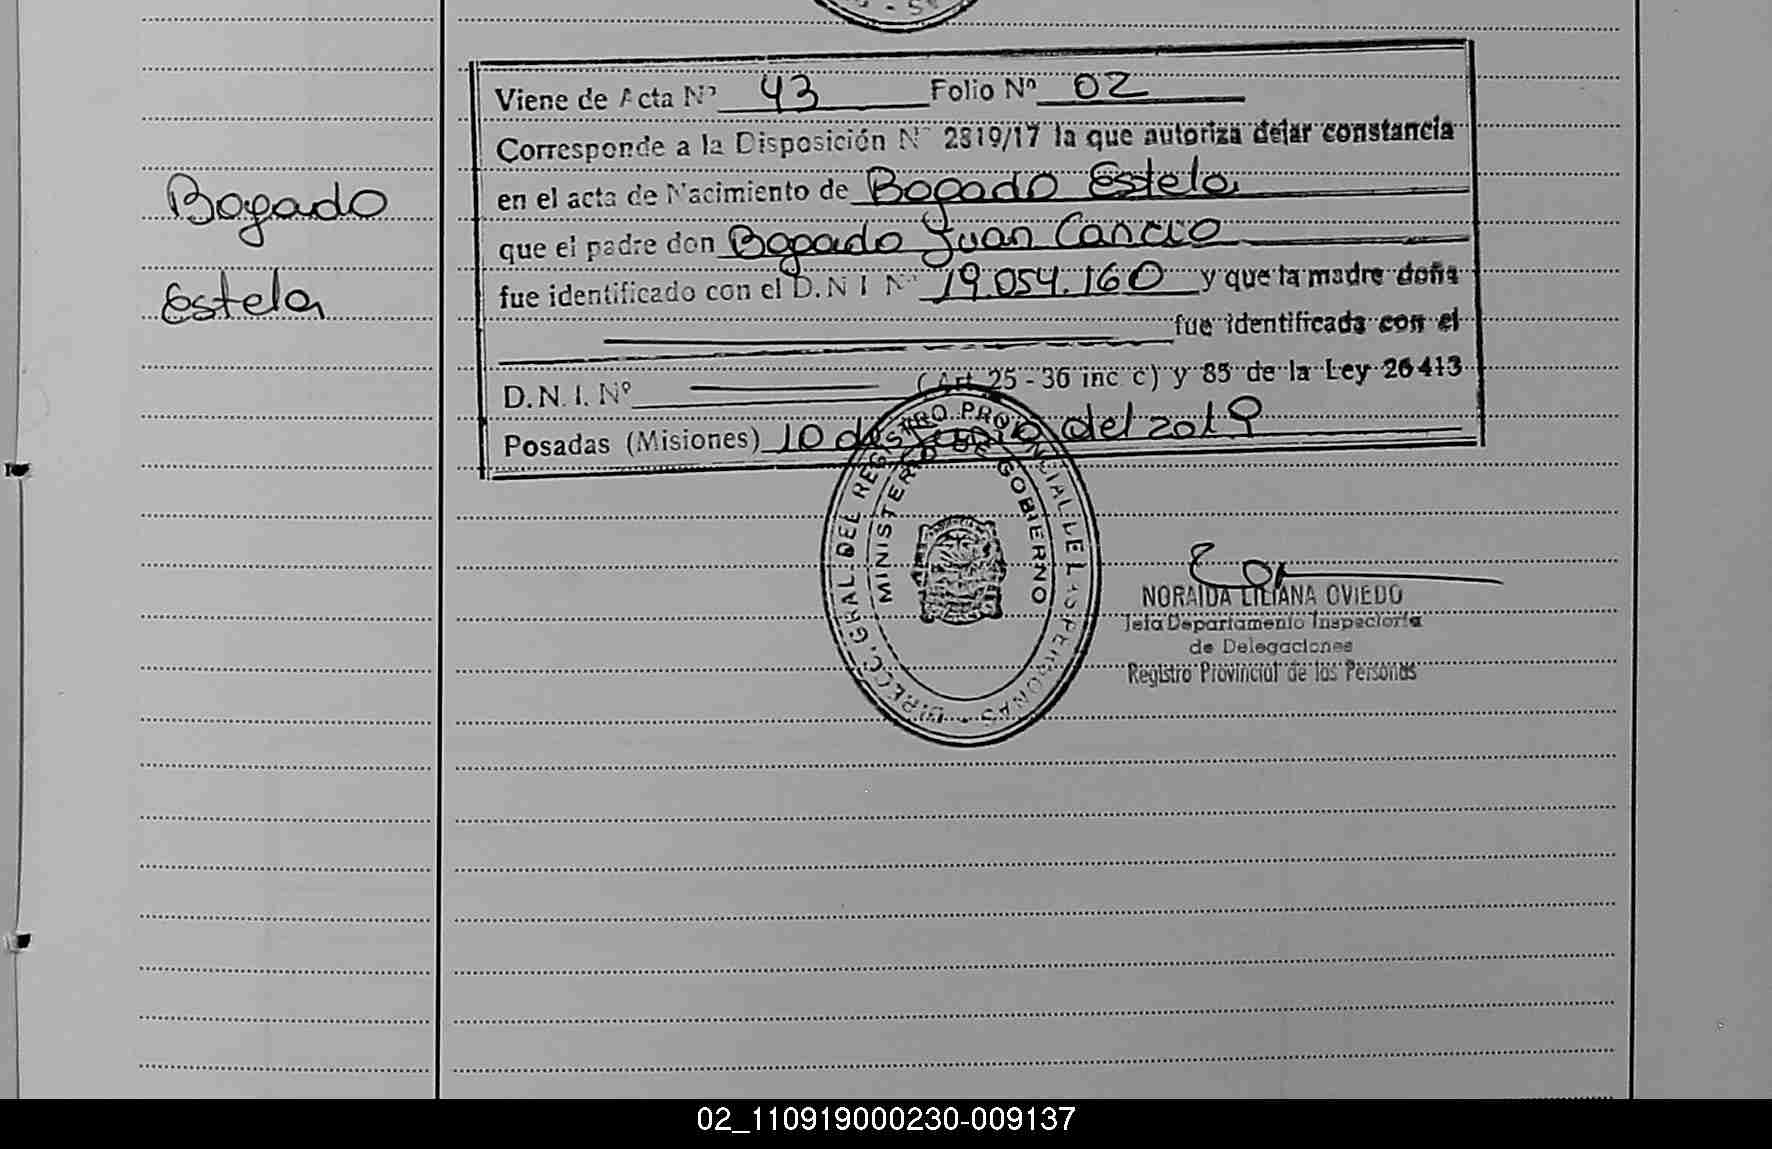 Viene de Acta Nº 43 Folio Nº 02
Corresponde a la Disposición Nº 2819/17 la que autoriza dejar constancia
en el acta de Nacimiento de Bogado Estela
que el padre don Bogado Juan Cancio
fue identificado con el D.N I Nº 19.054.160 y que la madre doña
fue identificada con el
D.N.I. Nº (Art. 25 - 36 inc. c) y 85 de la Ley 26413
Posadas (Misiones) 10 de del 2019
Bogado
Estela
DIRECC. GRAL. DEL REGISTRO PROVINCIAL DE LAS PERSONAS
MINISTERIO DE GOBIERNO
NORAIDA LILIANA OVIEDO
Jefa Departamento Inspectoria
de Delegaciones
Registro Provincial de las Personas
02_110919000230-009137